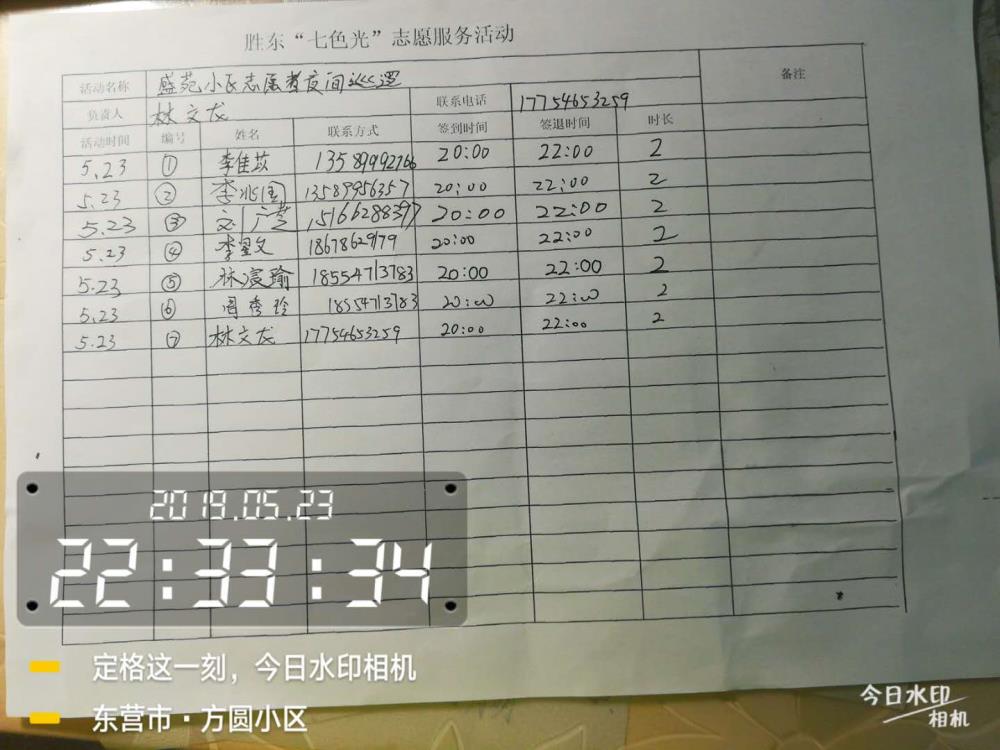 胜东“七色光”志愿服务活动
活动名称 盛苑小区志愿者夜间巡逻 备注
负责人 林文龙 联系电话 17754653259
活动时间 编号 姓名 联系方式 签到时间 签退时间 时长
5.23 ① 李佳苡 13589992766 20:00 22:00 2
5.23 ② 李兆国 13589956357 20:00 22:00 2
5.23 ③ 15166288397 20:00 22:00 2
5.23 ④ 李望文 18678629179 20:00 22:00 2
5.23 ⑤ 林宸瑜 18554713783 20:00 22:00 2
5.23 ⑥ 周秀玲 18554713783 20:00 22:00 2
5.23 ⑦ 林文龙 17754653259 20:00 22:00 2
2019.05.23
22:33:34
定格这一刻，今日水印相机
东营市·方圆小区
今日水印
相机